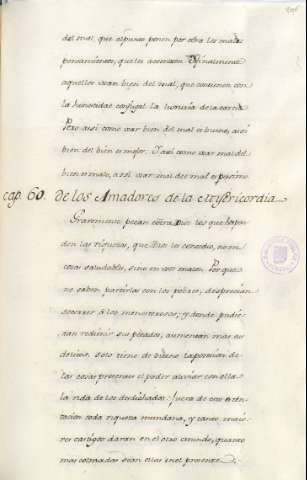 del mal, que alpunto ponen por obra los malos
pensamientos, quales acometen. Y finalmente
aquellos usan bien del mal, que contienen con
la honestidad conjugal la luxuria de la carne.
Pero assi como usar bien del mal es bueno, assi
bien del bien es mejor. Y assi como usar mal del
bien es malo, assi usar mal del mal es pessimo.
cap. 60. de los Amadores de la Misericordia.
Gravemente pecan contra Dios los que
den las riquezas, que Dios les concedio, no en
cosas saludables, sino en uso malo. Porque
no saben partirlas con los pobres, desprecian
socorrer à los menesterosos; y donde pudie-
ran redimir sus pecados, aumentan mas sus
delitos. Solo tiene de bueno la posession de
las cosas presentes el poder aliviar con ella
la vida de los desdichados: fuera de esto es ten-
tacion toda riqueza mundana, y tanto mayo-
res castigos daran en el otro mundo, quanto
mas colmadas sean ellas en el presente.